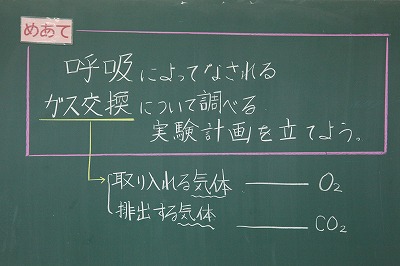 めあて
呼吸によってなされる
ガス交換について調べる
実験計画を立てよう。
取り入れる気体 ─── O₂
排出する気体 ─── CO₂